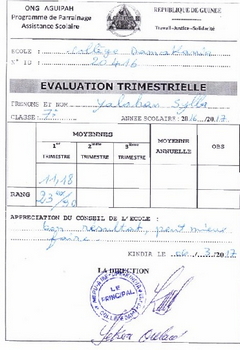 ONG AGUIPAH
Programme de Parrainage
Assistance Scolaire
REPUBLIQUE DE GUINEE
Travail-Justice-Solidarité
ECOLE : Collège
N° ID : 20416
EVALUATION TRIMESTRIELLE
PRENOMS ET NOM Sylla
CLASSE: 7e ANNEE SCOLAIRE: 2016 /2017
MOYENNES MOYENNE ANNUELLE OBS
1er TRIMESTRE 2ème TRIMESTRE 3ème TRIMESTRE
11,48
RANG 23e /90
APPRECIATION DU CONSEIL DE L'ECOLE :
Bon résultat, peut mieux
faire
KINDIA le 3 /2017
LA DIRECTION
Le
PRINCIPAL